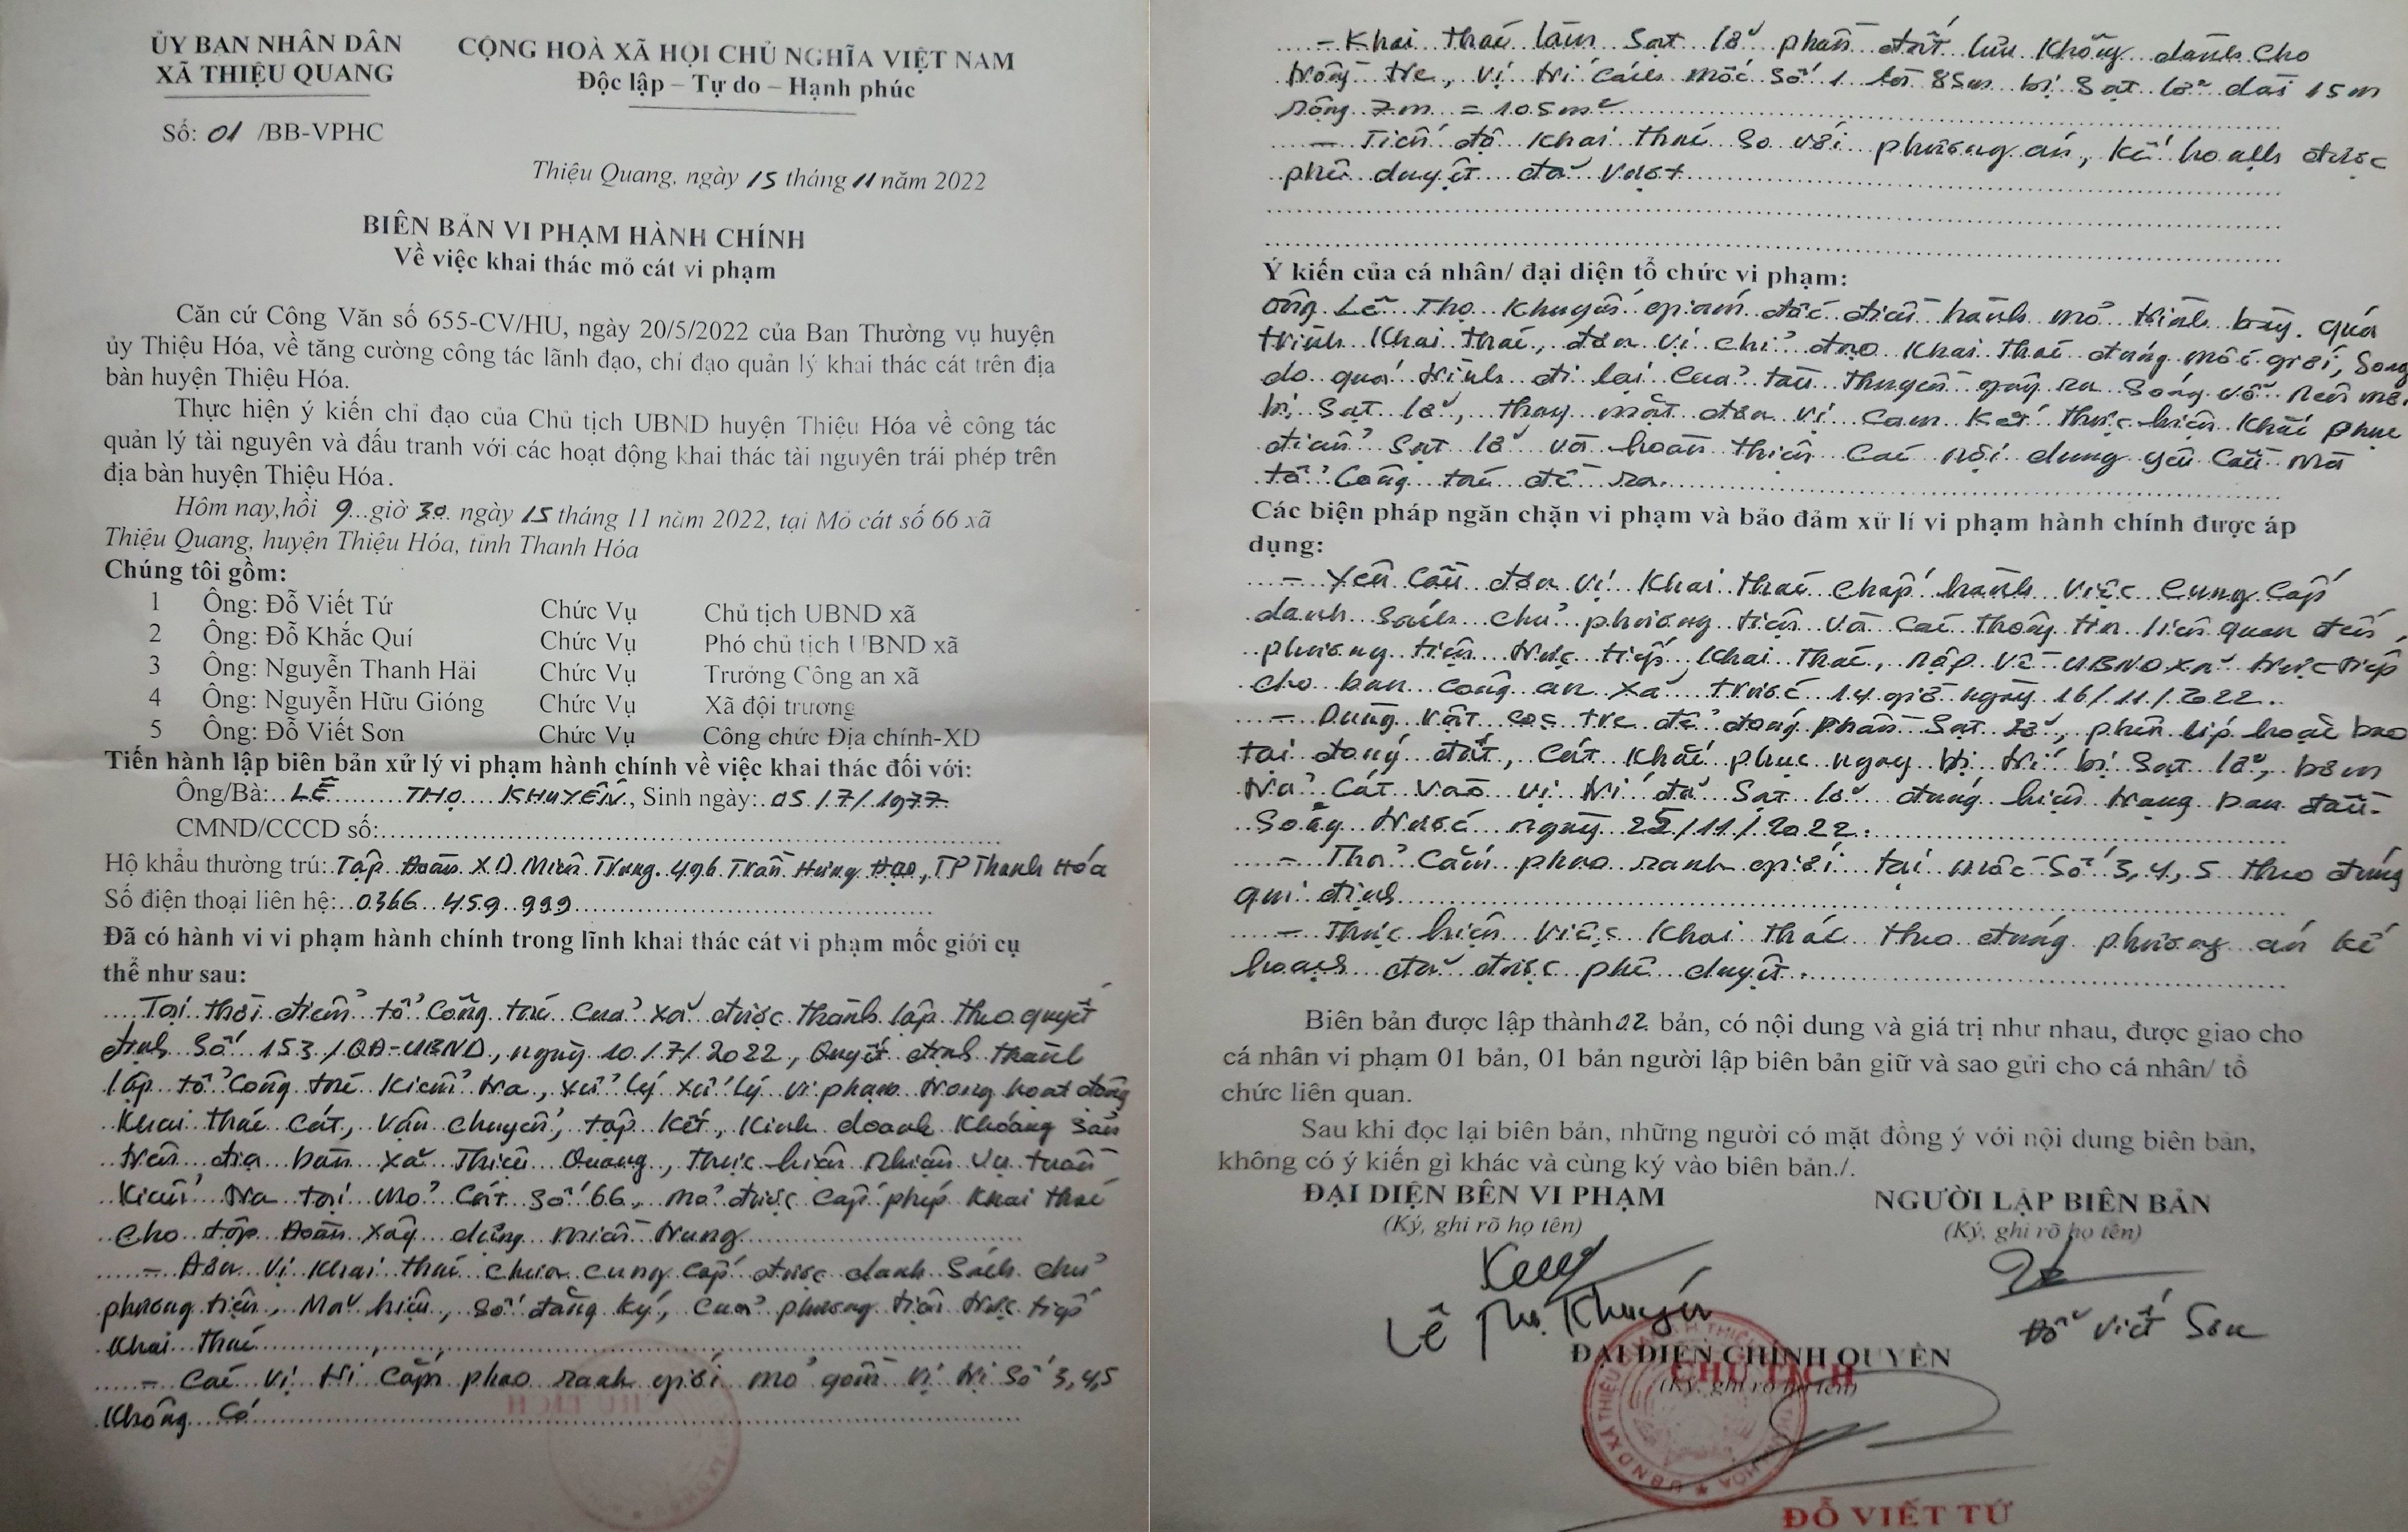 ỦY BAN NHÂN DÂN
XÃ THIỆU QUANG
CỘNG HOÀ XÃ HỘI CHỦ NGHĨA VIỆT NAM
Độc lập – Tự do – Hạnh phúc
Số: 01 /BB-VPHC
Thiệu Quang, ngày 15 tháng 11 năm 2022
BIÊN BẢN VI PHẠM HÀNH CHÍNH
Về việc khai thác mỏ cát vi phạm
Căn cứ Công Văn số 655-CV/HU, ngày 20/5/2022 của Ban Thường vụ huyện
ủy Thiệu Hóa, về tăng cường công tác lãnh đạo, chỉ đạo quản lý khai thác cát trên địa
bàn huyện Thiệu Hóa.
Thực hiện ý kiến chỉ đạo của Chủ tịch UBND huyện Thiệu Hóa về công tác
quản lý tài nguyên và đấu tranh với các hoạt động khai thác tài nguyên trái phép trên
địa bàn huyện Thiệu Hóa.
Hôm nay,hồi 9 giờ 30 ngày 15 tháng 11 năm 2022, tại Mỏ cát số 66 xã
Thiệu Quang, huyện Thiệu Hóa, tỉnh Thanh Hóa
Chúng tôi gồm:
1 Ông: Đỗ Viết Tứ Chức Vụ Chủ tịch UBND xã
2 Ông: Đỗ Khắc Quí Chức Vụ Phó chủ tịch UBND xã
3 Ông: Nguyễn Thanh Hải Chức Vụ Trưởng Công an xã
4 Ông: Nguyễn Hữu Gióng Chức Vụ Xã đội trương
5 Ông: Đỗ Viết Sơn Chức Vụ Công chức Địa chính-XD
Tiến hành lập biên bản xử lý vi phạm hành chính về việc khai thác đối với:
Ông/Bà: LÊ THỌ KHUYẾN, Sinh ngày: 05/7/1977
CMND/CCCD số:
Hộ khẩu thường trú: Tập Đoàn XD Miền Trung 496 Trần Hưng Đạo, TP Thanh Hóa
Số điện thoại liên hệ: 0366 459 999
Đã có hành vi vi phạm hành chính trong lĩnh khai thác cát vi phạm mốc giới cụ
thể như sau:
Tại thời điểm tổ công tác của xã được thành lập theo quyết
định số 153/QĐ-UBND, ngày 10/7/2022, Quyết định thành
lập tổ công tác kiểm tra, xử lý xử lý vi phạm trong hoạt động
khai thác cát, vận chuyển, tập kết, kinh doanh khoáng sản
trên địa bàn xã Thiệu Quang, thực hiện nhiệm vụ tuần
kiểm tra tại mỏ cát số 66, mỏ được cấp phép khai thác
cho tập Đoàn xây dựng miền trung
- Đơn vị khai thác chưa cung cấp được danh sách chủ
phương tiện, Mã hiệu, số đăng ký, của phương tiện trực tiếp
khai thác
- Các vị trí cắm phao ranh giới mỏ gồm vị trí số 3,4,5
không có
- Khai thác làm sạt lở phần đất lưu không dành cho
trồng tre, vị trí cách mốc số 1 là 85m bị sạt lở dài 15m
rộng 7m = 105m²
- Tiến độ khai thác so với phương án, kế hoạch được
phê duyệt đã vượt
Ý kiến của cá nhân/ đại diện tổ chức vi phạm:
Ông Lê Thọ Khuyến giám đốc điều hành mỏ trình bày. quá
trình khai thác, đơn vị chỉ đạo khai thác đúng mốc giới, song
do quá trình đi lại của tàu thuyền gây ra sóng vỗ nên mới
bị sạt lở, thay mặt đơn vị cam kết thực hiện khắc phục
điểm sạt lở và hoàn thiện các nội dung yêu cầu mà
tổ công tác đề ra.
Các biện pháp ngăn chặn vi phạm và bảo đảm xử lí vi phạm hành chính được áp
dụng:
- Yêu cầu đơn vị khai thác chấp hành việc cung cấp
danh sách chủ phương tiện và các thông tin liên quan đến
phương tiện trực tiếp khai thác, nộp về UBND xã trực tiếp
cho ban công an xã trước 14 giờ ngày 16/11/2022.
- Dùng vật cọc tre để đóng phần sạt lở, phên liếp hoặc bao
tải đóng đất, cát khắc phục ngay vị trí bị sạt lở, bơm
trả cát vào vị trí đã sạt lở đúng hiện trạng ban đầu
trước ngày 25/11/2022.
- Thả cắm phao ranh giới tại mốc số 3,4,5 theo đúng
qui định
- Thực hiện việc khai thác theo đúng phương án kế
hoạch đã được phê duyệt.
Biên bản được lập thành 02 bản, có nội dung và giá trị như nhau, được giao cho
cá nhân vi phạm 01 bản, 01 bản người lập biên bản giữ và sao gửi cho cá nhân/ tổ
chức liên quan.
Sau khi đọc lại biên bản, những người có mặt đồng ý với nội dung biên bản,
không có ý kiến gì khác và cùng ký vào biên bản./.
ĐẠI DIỆN BÊN VI PHẠM
(Ký, ghi rõ họ tên)
Lê Thọ Khuyến
NGƯỜI LẬP BIÊN BẢN
(Ký, ghi rõ họ tên)
Đỗ Viết Sơn
ĐẠI DIỆN CHÍNH QUYỀN
(Ký, ghi rõ họ tên)
CHỦ TỊCH
ĐỖ VIẾT TỨ